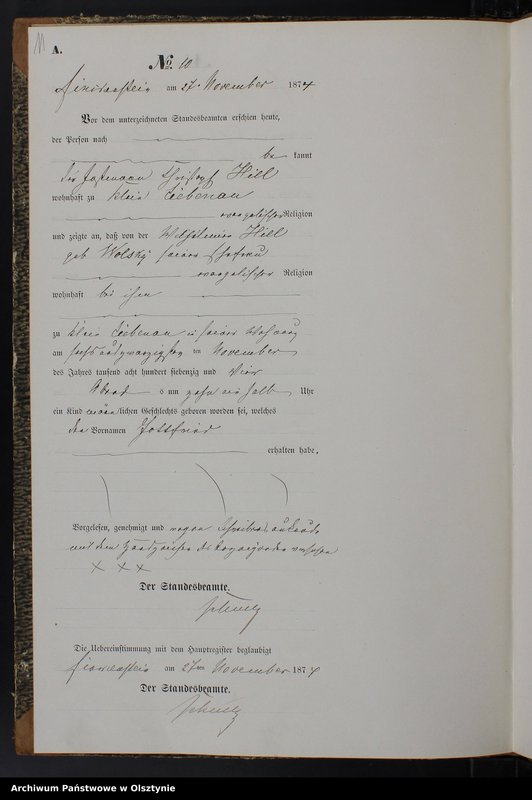 A.
№. 10
Finckenstein am 27. November 1874
Vor dem unterzeichneten Standesbeamten erschien heute,
der Person nach
be kannt
der Christoph Hill
wohnhaft zu Klein Liebenau
evangelischer Religion
und zeigte an, daß von der Wilhelmine Hill
geb Wolsky seiner Ehefrau
evangelischer Religion
wohnhaft bei ihm
zu Klein Liebenau in seiner Wohnung
am sechsundzwanzigsten ten November
des Jahres tausend acht hundert siebenzig und vier
Abend s um zehn ein halb Uhr
ein Kind männ lichen Geschlechts geboren worden sei, welches
den Vornamen Gottfried
erhalten habe.
Vorgelesen, genehmigt und wegen Schreibensunkunde
mit dem Handzeichen des versehen
× × ×
Der Standesbeamte.
Die Uebereinstimmung mit dem Hauptregister beglaubigt
Finckenstein am 27ten November 1874
Der Standesbeamte.
Archiwum Państwowe w Olsztynie